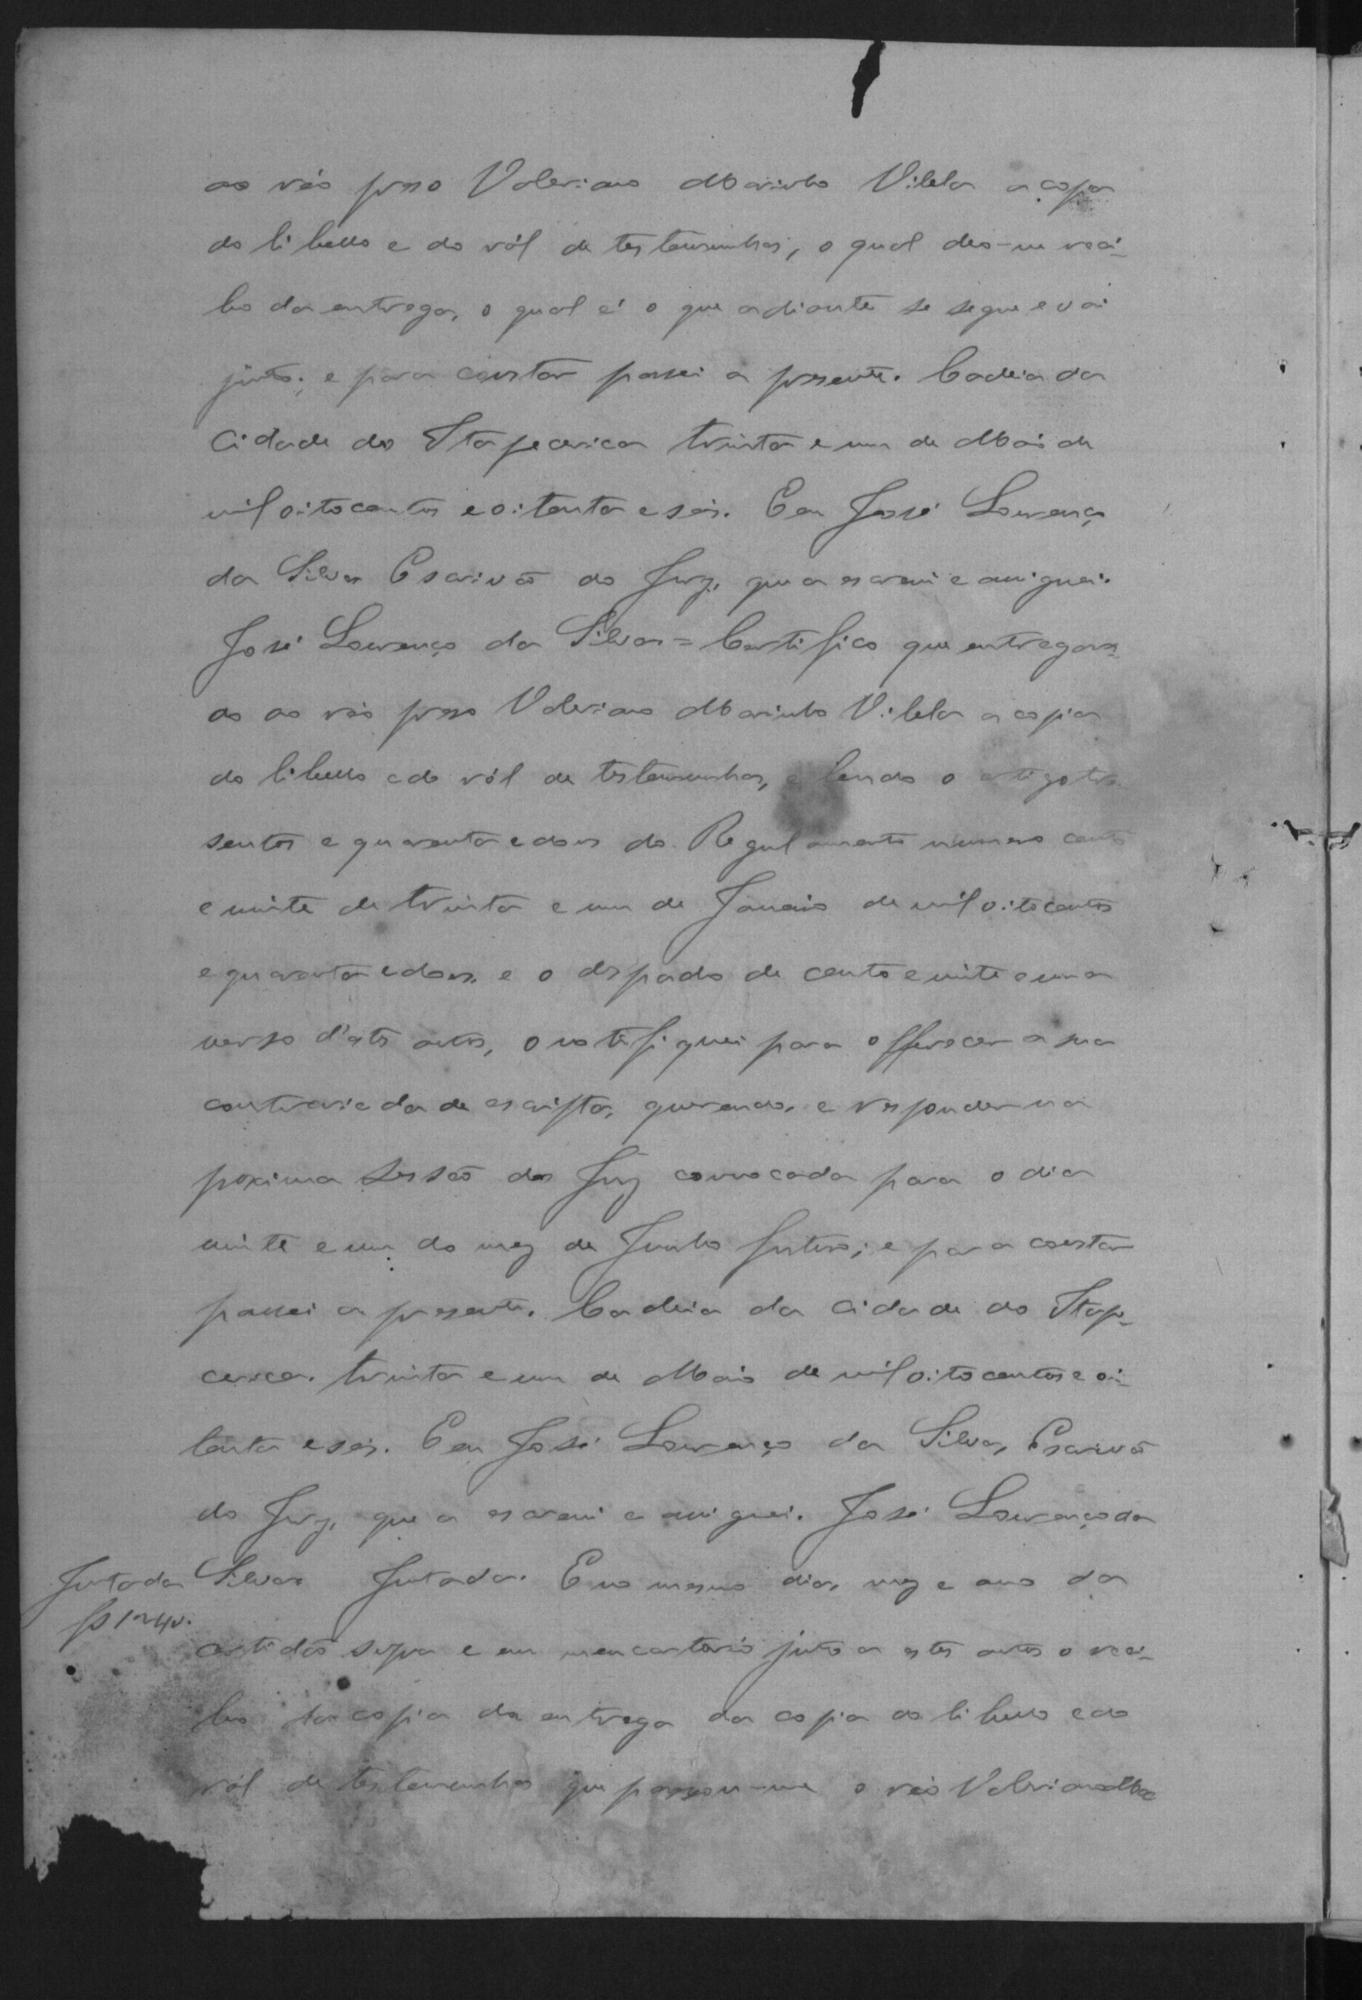 ao réo preso Valeriano Marinho Vilela a copia
do libello e do ról de testemunhas, o qual deo-me reci-
bo da entrega, o qual é o que adiante se segue e vai
junto; e para constar passei a presente. Cadeia da
Cidade do Itapecerica trinta e um de Maio de
mil oitocentos e oitenta e seis. Eu José Lourenço
da Silva Escrivão do Jury, que a escrevi e assignei.
José Lourenço da Silva = Certifico que entregan-
do ao réo preso Valeriano Marinho Vilela a copia
do libello e do ról de testemunhas, e lendo o artigo tre
sentos e quarenta e dois do Regulamento numero cento
e vinte de trinta e um de Janeiro de mil oitocentos
e quarenta e dois, e o despacho de cento e vinte e uma
verso d'estes autos, o notifiquei para offerecer a sua
contrariedade escripta, querendo, e responder na
proxima Sessão do Jury convocada para o dia
vinte e um do mez de Junho futuro; e para constar
passei a presente. Cadeia da Cidade do Itape-
cerica. trinta e um de Maio de mil oitocentos e oi-
tenta e seis. Eu José Lourenço da Silva, Escrivão
do Jury, que a escrevi e assignei. José Lourenço da
Juntada Silva. Juntada. E no mesmo dia, mez e anno da
fs 124v.
certidão supra e em meu cartorio junto a estes autos o reci-
bo da copia da entrega da copia do libello e do
ról de testemunhas que passou-me o réo Valeriano Ma